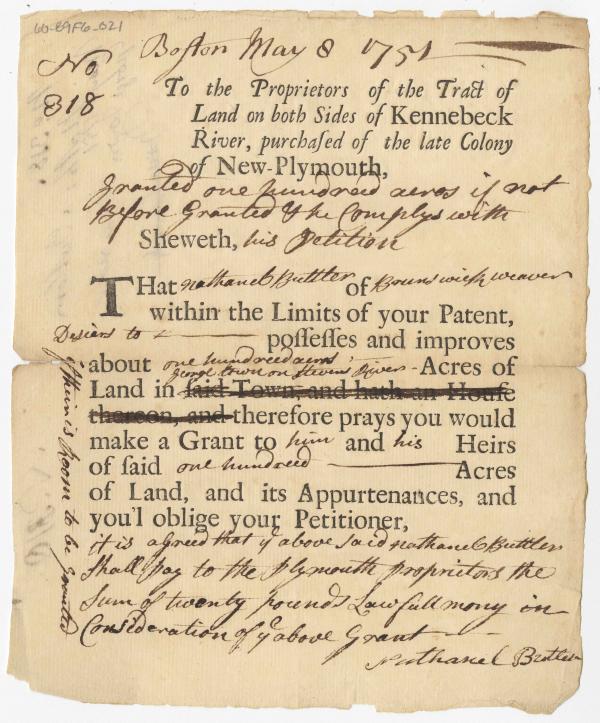 60-89F6-021
Boston May 8 1751
No
318
To the Proprietors of the Tract of
Land on both Sides of Kennebeck
River, purchaſed of the late Colony
of New-Plymouth,
Granted one hundreed acres if not
Before Granted & he Complys with
Sheweth, his Petition
THat nathanel Buttler of Brunswick weaver
within the Limits of your Patent,
Desiers to poſſeſſes and improves
about one hundreed acrs Acres of
george town on Stevens River
Land in ſaid Town, and hath an Houſe
thereon, and therefore prays you would
make a Grant to him and his Heirs
of ſaid one hundreed Acres
of Land, and its Appurtenances, and
you'l oblige your Petitioner,
it is agreed that ye above said nathanel Buttler
Shall pay to the plymouth proprietors the
Sum of twenty pounds Lawfull mony in
Consideration of ye above Grant
Nathanel Buttler
if their is Room to be Granted